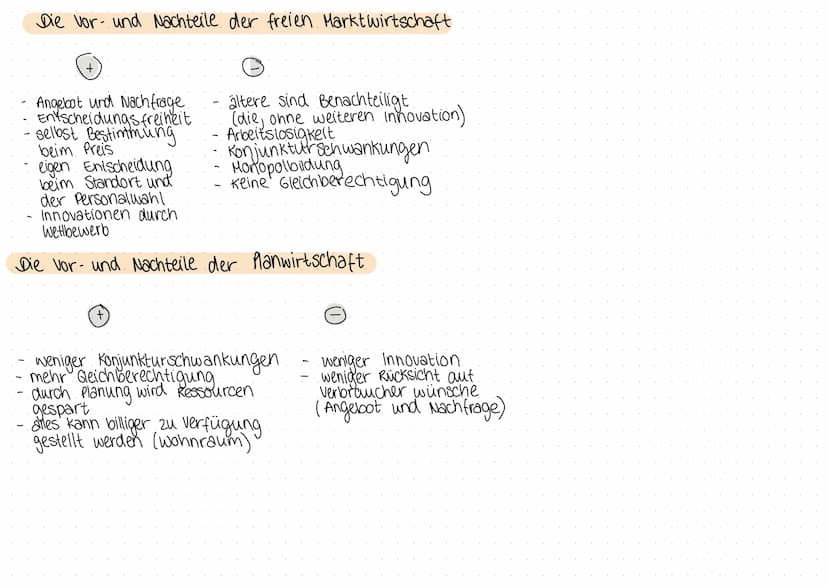 Die Vor- und Nachteile der freien Marktwirtschaft
+
-
- Angebot und Nachfrage
- Entscheidungsfreiheit
- selbst Bestimmung
beim Preis
- eigen Entscheidung
beim Standort und
der Personalwahl
- Innovationen durch
Wettbewerb
- ältere sind Benachteiligt
(die, ohne weiteren Innovation)
- Arbeitslosigkeit
- Konjunkturschwankungen
- Monopolbildung
- Keine Gleichberechtigung
Die Vor- und Nachteile der Planwirtschaft
+
-
- weniger Konjunkturschwankungen
- mehr Gleichberechtigung
- durch Planung wird Ressourcen
gespart
- alles kann billiger zu Verfügung
gestellt werden (Wohnraum)
- weniger Innovation
- weniger Rücksicht auf
Verbraucher wünsche
(Angebot und Nachfrage)